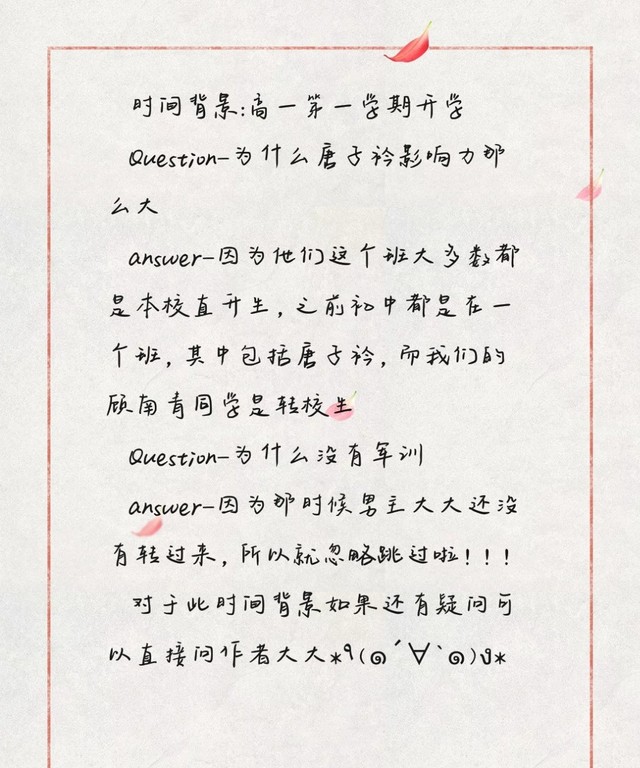 时间背景:高一第一学期开学
Question-为什么唐子衿影响力那
么大
answer-因为他们这个班大多数都
是本校直升生，之前初中都是在一
个班，其中包括唐子衿，而我们的
顾南青同学是转校生
Question-为什么没有军训
answer-因为那时候男主大大还没
有转过来，所以就忽略跳过啦！！！
对于此时间背景如果还有疑问可
以直接问作者大大*٩(๑´∀`๑)ง*